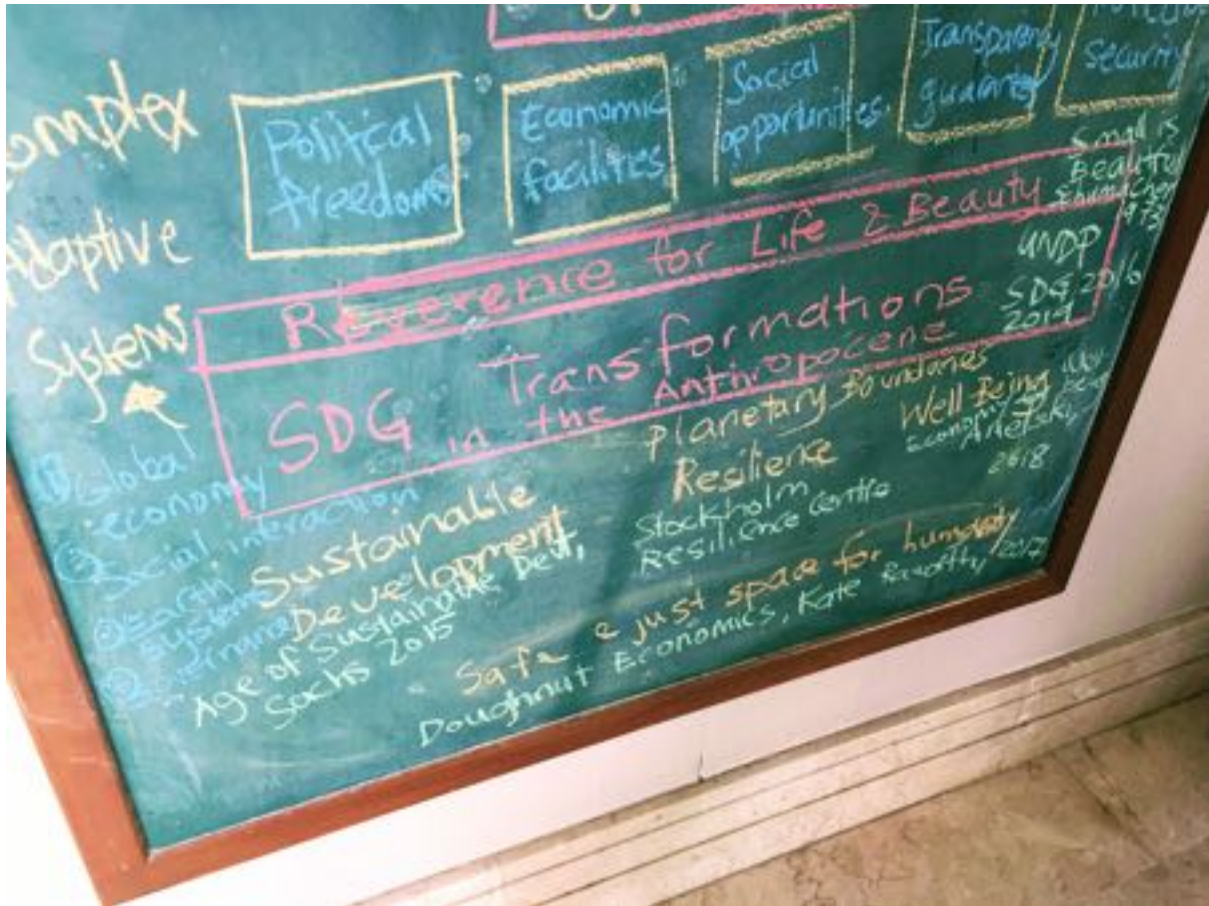 Complex
Adaptive
Systems
Political
freedoms
Economic
facilities
Social
opportunities.
Transparency
guarantey
security
Small is
Beautiful
Reverence for Life & Beauty
UNDP
SDG 2016
2019
SDG Transformations
in the Anthropocene
① Global
economy
② Social interaction
③ Earth
systems
Sustainable
Development
Age of Sustainable Devt,
Sachs 2015
Planetary Boundaries
Resilience
Stockholm
Resilience Centre
Well Being
Economy
2018
Safe & just space for humanity
Doughnut Economics, Kate 2017